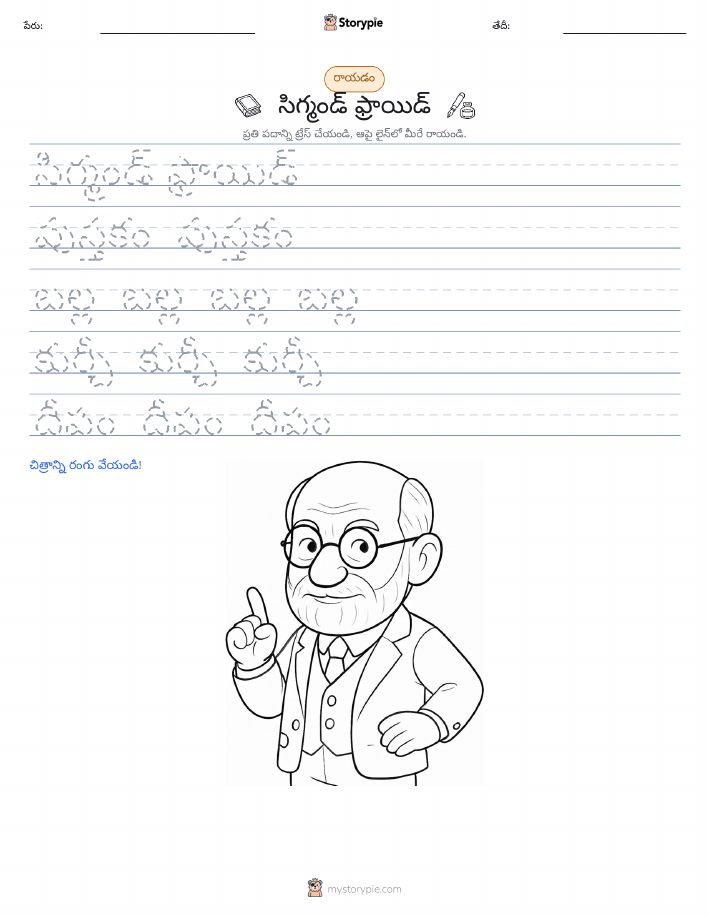 పేరు:
Storypie
తేదీ:
రాయడం
సిగ్మండ్ ఫ్రాయిడ్
ప్రతి పదాన్ని ట్రేస్ చేయండి, ఆపై లైన్‌లో మీరే రాయండి.
సిగ్మండ్ ఫ్రాయిడ్
పుస్తకం పుస్తకం
బల్ల బల్ల బల్ల బల్ల
కుర్చీ కుర్చీ కుర్చీ
దీపం దీపం దీపం
చిత్రాన్ని రంగు వేయండి!
mystorypie.com